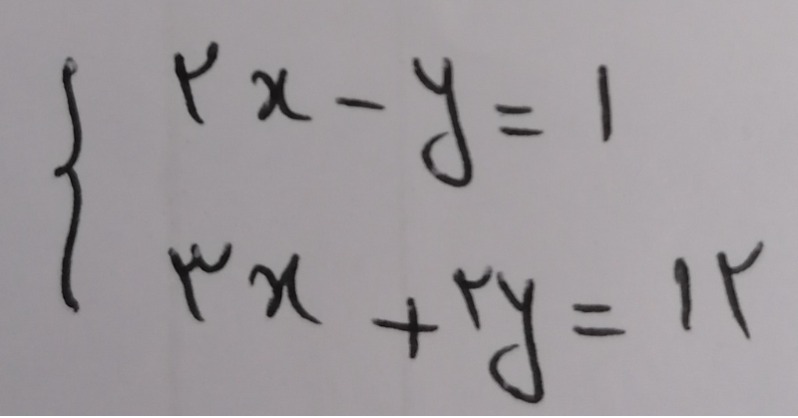 ۲x - y = ۱
۳x + ۲y = ۱۲